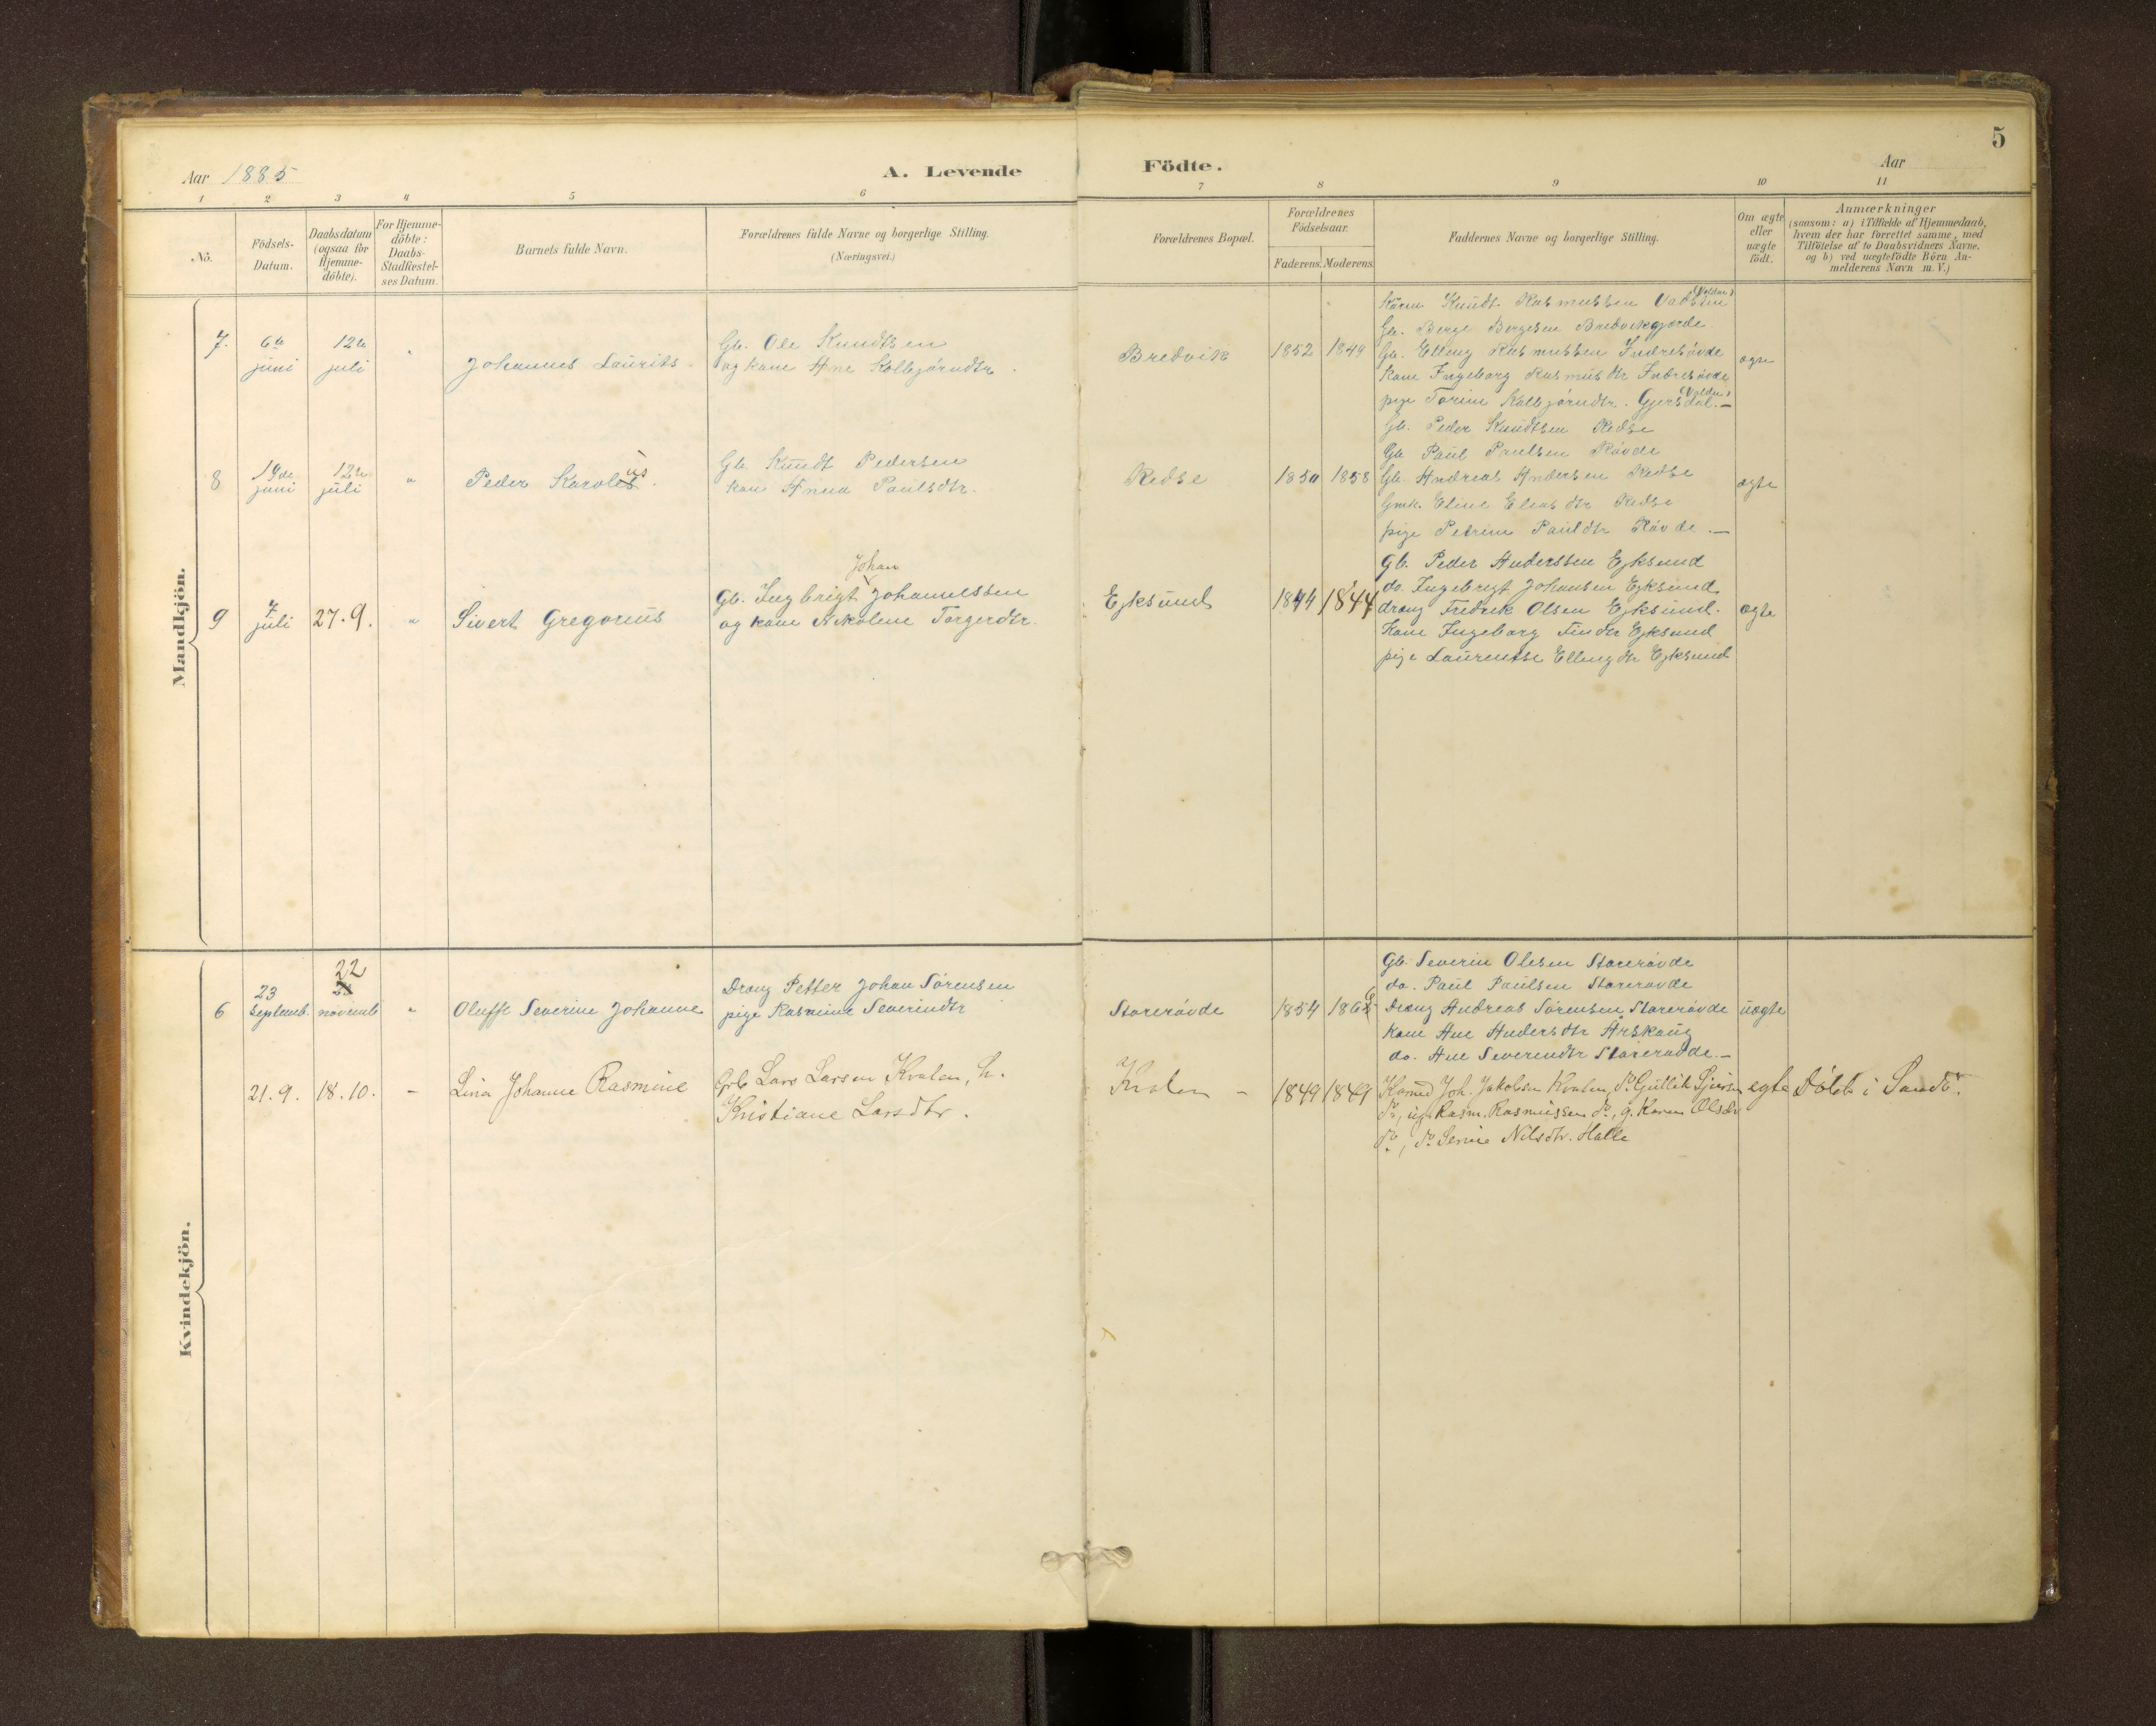 5
Aar 1885
A. Levende
Födte.
Aar
1 2 3 4 5 6 7 8 9 10 11
Nö.
Födsels-Datum.
Daabsdatum (ogsaa for Hjemme-döbte).
For Hjemme-döbte: Daabs-Stadfæstel-ses Datum.
Barnets fulde Navn.
Forældrenes fulde Navne og borgerlige Stilling.
(Næringsvei.)
Forældrenes Bopæl.
Forældrenes Födselsaar.
Faderens. Moderens.
Faddernes Navne og borgerlige Stilling.
Om ægte eller uægte födt.
Anmærkninger
(saasom: a) i Tilfælde af Hjemmedaab,
hvem der har forrettet samme, med
Tilföielse af to Daabsvidners Navne.
og b) ved uægtefödte Börn An-
melderens Navn m. V.)
Mandkjön.
7. 6te juni 12te juli " Johannes Laurits.
Gb. Ole Knudtsen
og kone Ane Kolbjørndtr.
Bredvik 1852 1849
Knudt Rasmussen (Volden)
Gb. Berge Bergesen Bredvikgjærde
Gb. Elling Rasmussen Indresøvde
Kone Ingeborg Rasmusdtr Indresøvde
pige Torine Kolbjørndtr. Gjersdal. (Volden) -
ægte
8 19de juni 12te juli " Peder Karoles us.
Gb. Knudt Pedersen
kone Anna Paulsdtr.
Redse 1850 1858
Gb. Peder Knudtsen Redse
Gb. Paul Paulsen Røvde
Gb. Andreas Andersen Redse
Gmk. Eline Eliasdtr Redse
pige Petrine Pauldtr Røvde. -
ægte
9 7 juli 27.9. " Sivert Gregorius
Johan
Gb. Ingbrigt Johannessen
og kone Nikoline Torgerdtr.
Ejksund 1844 1844
Gb. Peder Anderssen Ejksund
do. Ingebrigt Johansen Ejksund
dreng Fredrik Olsen Ejksund.
Kone Ingeborg Findtr Ejksund
pige Laurentse Ellingdtr Ejksund
ægte
Kvindekjön.
6 23 Septemb. 22 novemb " Oluffe Severine Johanne
Dreng Petter Johan Sörensen
pige Rasmine Severindtr
Storerøvde 1854 186
Gb. Severin Olesen Storerøvde
do. Paul Paulsen Storerøvde
Dreng Andreas Sörensen Storerøvde
Kone Ane Andersdtr Årskoug
do. Ane Severindtr Storerøvde. -
uægte
21.9. 18.10. - Lina Johanne Rasmine
Grb Lars Larsen Kvalen, h.
Kristiane Larsdtr.
Kvalen - 1849 1849
Joh. Jakobsen Kvalen, do Gullik Sjursen
do, ug. Rasm. Rasmussen do, g. Karen Olsdtr
do, do Serine Nilsdtr. Halle
egte Döbt i Sandö.